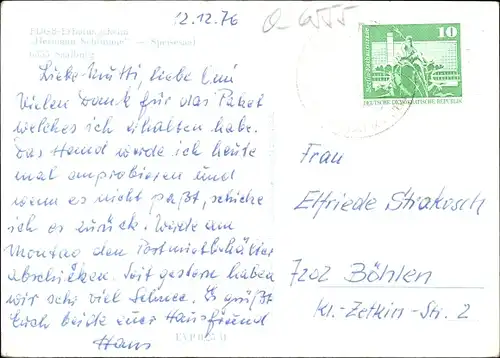 12.12.76
FDGB-Erholungsheim
„Hermann Schlimme" — Speisesaal
Liebe Mutti, liebe Omi
Vielen Dank für das Paket
welches ich erhalten habe.
Das Hemd werde ich heute
mal anprobieren und
wenn es nicht paßt, schicke
ich es zurück. Werde am
Montag den
abschicken. Seit gestern haben
wir sehr viel Schnee. Es grüßt
Euch beide euer Hausfreund
Hans
10
DEUTSCHE DEMOKRATISCHE REPUBLIK
Frau
Elfriede Strakosch
7202 Böhlen
Kl.-Zetkin-Str. 2